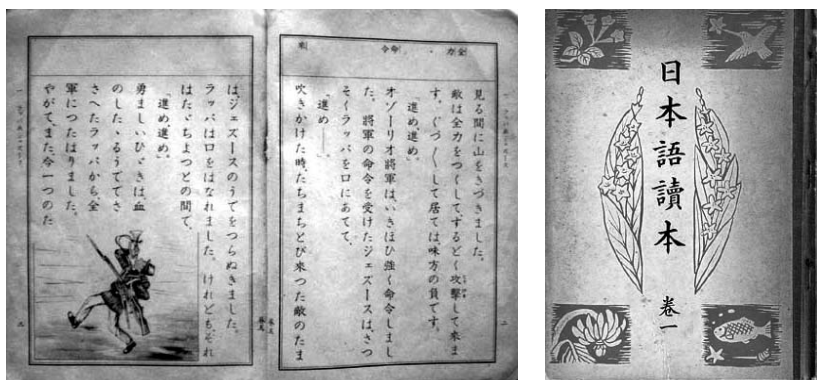 全力
命令
來
見る間に山をきづきました。
敵は全力をつくして、するどく攻撃して來ま
す。ぐづ〱して居ては、味方の負です。
「進め進め。」
オゾーリオ將軍は、いきほひ強く命令しまし
た。將軍の命令を受けたジェズースは、さつ
そくラッパを口にあてて、
「進め――。」
吹きかけた時、たちまちとび來つた敵のたま
はジェズースのうでをつらぬきました。
ラッパは口をはなれました。けれども、それ
はたゞちよつとの間で、
「進め、進め。」
勇ましいひゞきは、血
のしたゝるうででさ
さへたラッパから、全
軍につたはりました。
やがて、また、今一つのた
日本語讀本 卷一